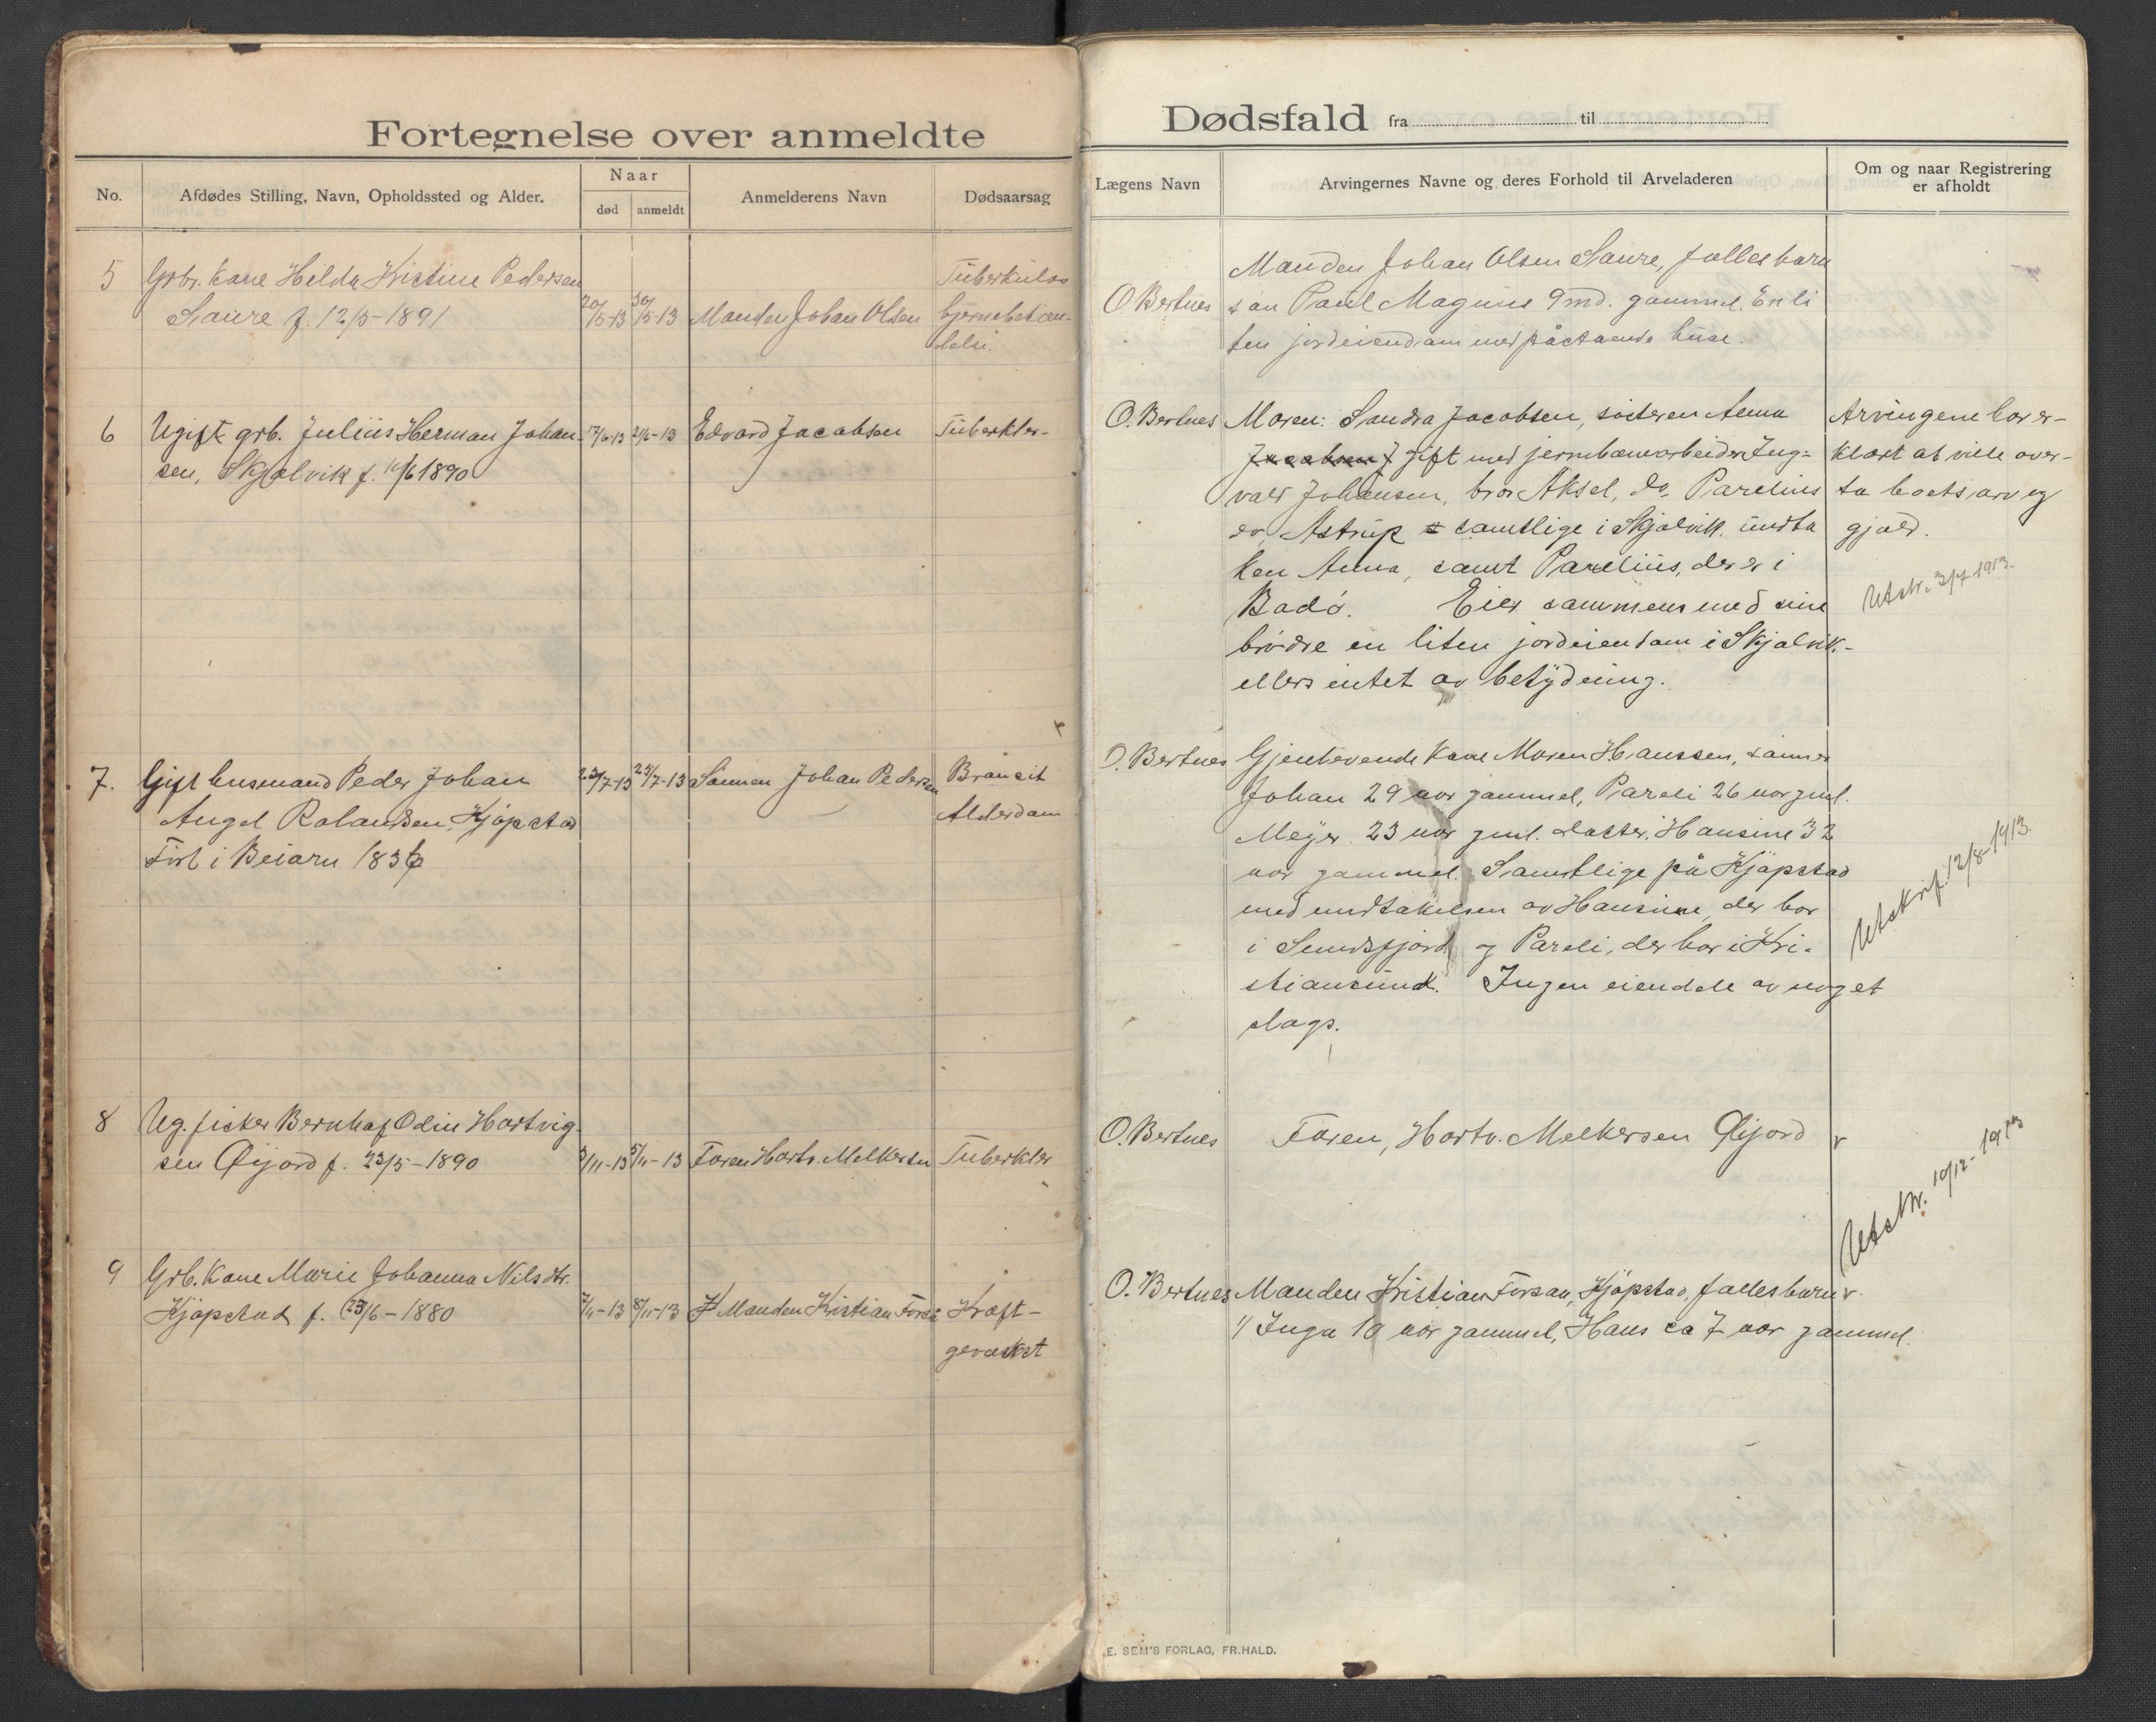 Fortegnelse over anmeldte
No.
Afdødes Stilling, Navn, Opholdssted og Alder.
Naar
død
anmeldt
Anmelderens Navn
Dødsaarsag
5
Grbr. kone Hilda Kristine Pedersen
Saure f. 12/5-1891
20/5-13
30/5-13
Manden Johan Olsen
Tuberkuløs
hjernebetæn-
delse.
6
Ugift grb. Julius Herman Johan-
sen, Skjælvik f. 10/6 1890
17/6-13
21/6-13
Edvard Jacobsen
Tuberkler-
7.
Gift husmand Peder Johan
Angel Rolandsen, Kjøpstad
Født i Beiarn 1836
23/7-13
25/7-13
Sønnen Johan Pedersen
Bronkit
Alderdom
8
Ug. fisker Bernhof Odin Hartvig-
sen Øijord f. 23/5-1890
3/11-13
5/11-13
Faren Hartv. Melkersen
Tuberkler
9
Grb. Kone Marie Johanna Nilsdtr.
Kjøpstad f. 23/6-1880
7/11-13
8/11-13
Manden Kristian Forsa
Kræft-
gevækst
Dødsfald fra til
Lægens Navn
Arvingernes Navne og deres Forhold til Arveladeren
Om og naar Registrering
er afholdt
O. Bertnes
Manden Johan Olsen Saure, fælles barn
søn Paul Magnus 9 md. gammel. En li
ten jordeiendom med påstaaende huse.
O. Bertnes
Moren: Sandra Jacobsen, søsteren Anna
Jacobsen gift med jernbanearbeider Ing-
vald Johansen, bror Aksel, do. Parelius
do. Astrup samtlige i Skjælvik. undta
ken Anna, samt Parelius, der er i
Bodø. Eier sammens med sine
brødre en liten jordeiendom i Skjælvik.-
ellers intet av betydning.
Arvingene har er-
klært at ville over-
ta boets arv og
gjæld.
Utskr. 3/7-1913.
O. Bertnes
Gjenlevende kone Maren Hanssen, sønner
Johan 29 aar gammel, Pareli 26 aar gml.
Meyer 23 aar gml. datter, Hansine 32
aar gammel. Samtlige på Kjøpstad
med undtakelsen av Hansine, der bor
i Sundsfjord og Pareli, der bor i Kri-
stiansund. Ingen eiendele av noget
slags.
Utskrif. 12/8-1913.
O. Bertnes
Faren, Hartv. Melkersen Øijord
Utskr. 10/12-1913
O. Bertnes
Manden Kristian Forsan, Kjøpstad, fælles barn
1/ Inga 10 aar gammel, Hans ca 7 aar gammel.
E. SEM'S FORLAG, FR.HALD.